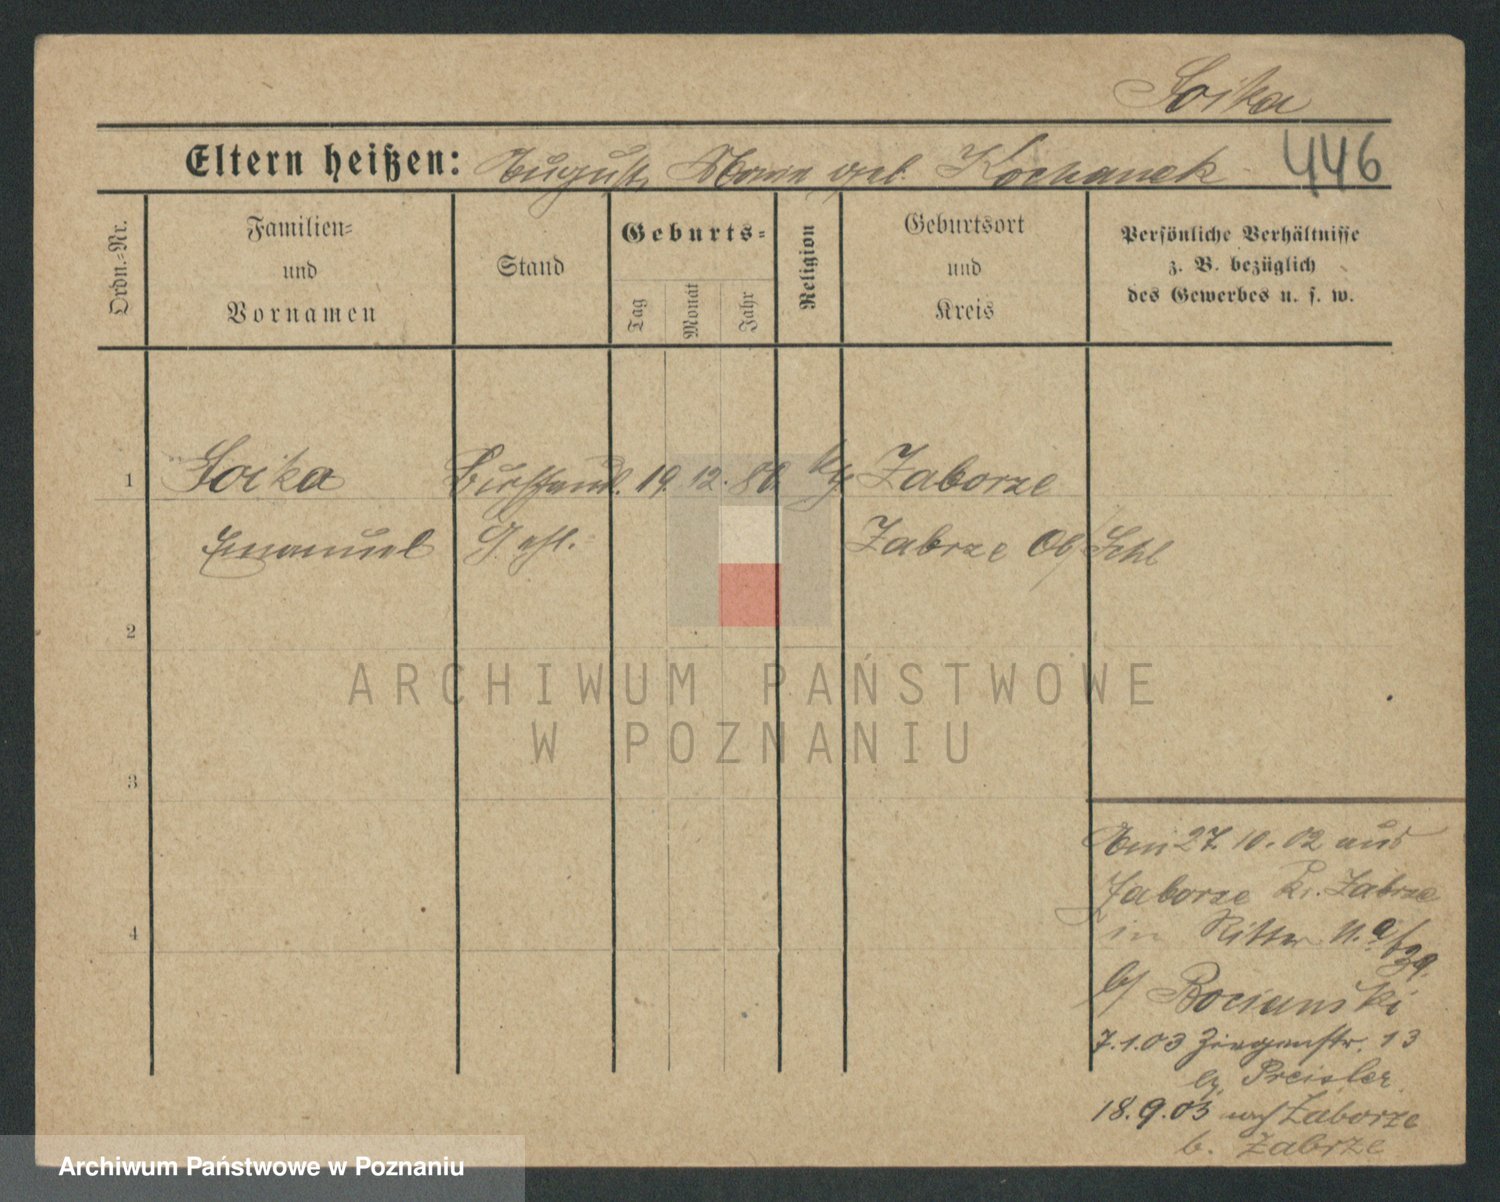 Soika
Eltern heißen: August, Marie geb. Kochanek
446
Ordn.-Nr.
Familien-
und
Vornamen
Stand
Geburts-
Tag
Monat
Jahr
Religion
Geburtsort
und
Kreis
Persönliche Verhältnisse
z. B. bezüglich
des Gewerbes u. s. w.
1
Soika 19. 12. 80. Zaborze
Emanuel Zabrze Ob/Schl
2
3
4
Am 27. 10. 02 aus
Zaborze Kr. Zabrze
in Ritter
b/ Bocianski
7.1.03 Ziegenstr. 13
Preisler
18.9.03 nach Zaborze
b. Zabrze
ARCHIWUM PAŃSTWOWE
W POZNANIU
Archiwum Państwowe w Poznaniu